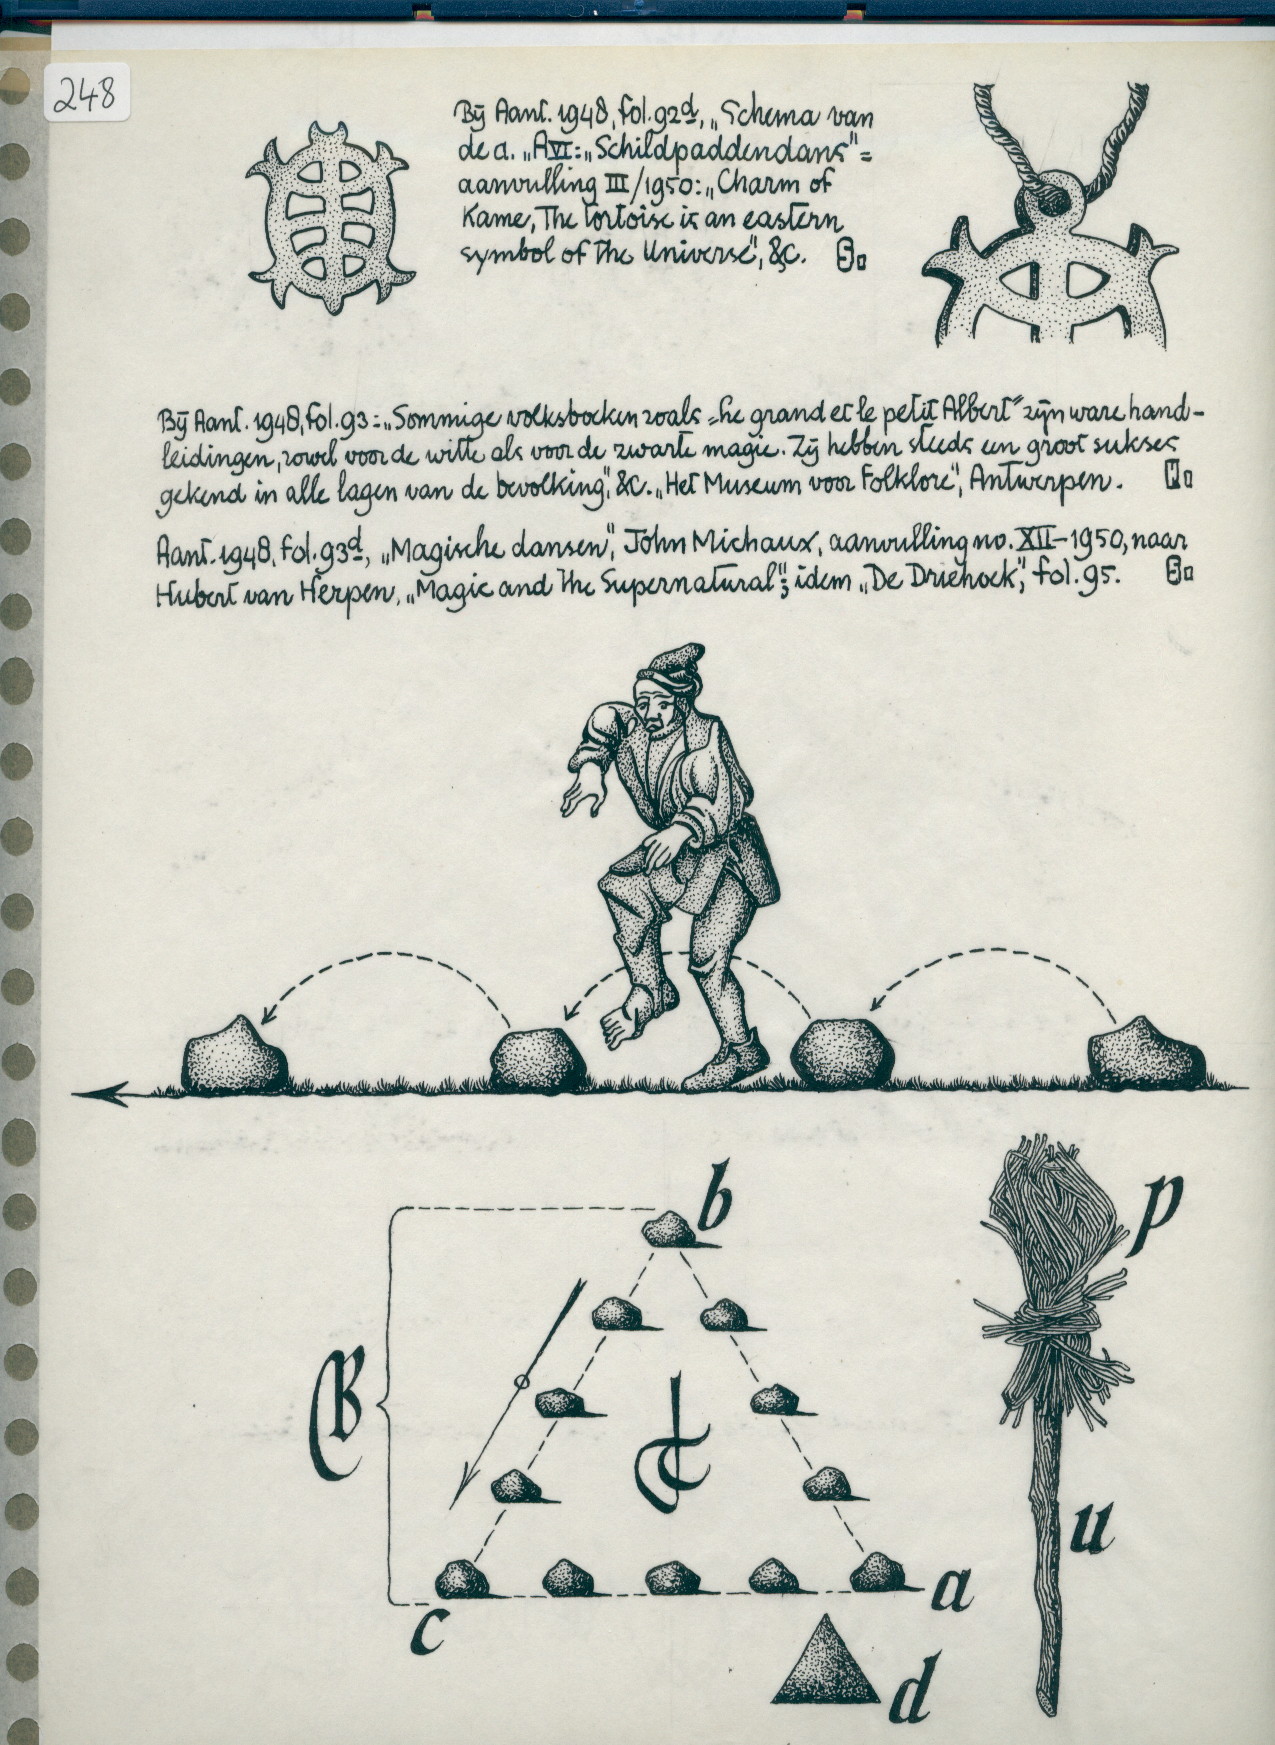 248
Bÿ Aant. 1948, fol. 92d, „Schema van
de a. „AVI: „Schildpaddendans" =
aanvulling III/1950: „Charm of
Kame, The tortoise is an eastern
symbol of the Universe", &c. S.
Bÿ Aant. 1948, fol. 93 = „Sommige volksboeken zoals „he grand et le petit Albert" zÿn ware hand-
leidingen, zowel voor de witte als voor de zwarte magie. Zÿ hebben steeds een groot sukses
gekend in alle lagen van de bevolking", &c. „Het Museum voor Folklore", Antwerpen.
Aant. 1948, fol. 93d, „Magische dansen", John Michaux, aanvulling no. XII-1950, naar
Hubert van Herpen, „Magic and the Supernatural"; idem „De Driehoek", fol. 95. S.
b
p
B
u
c
a
d